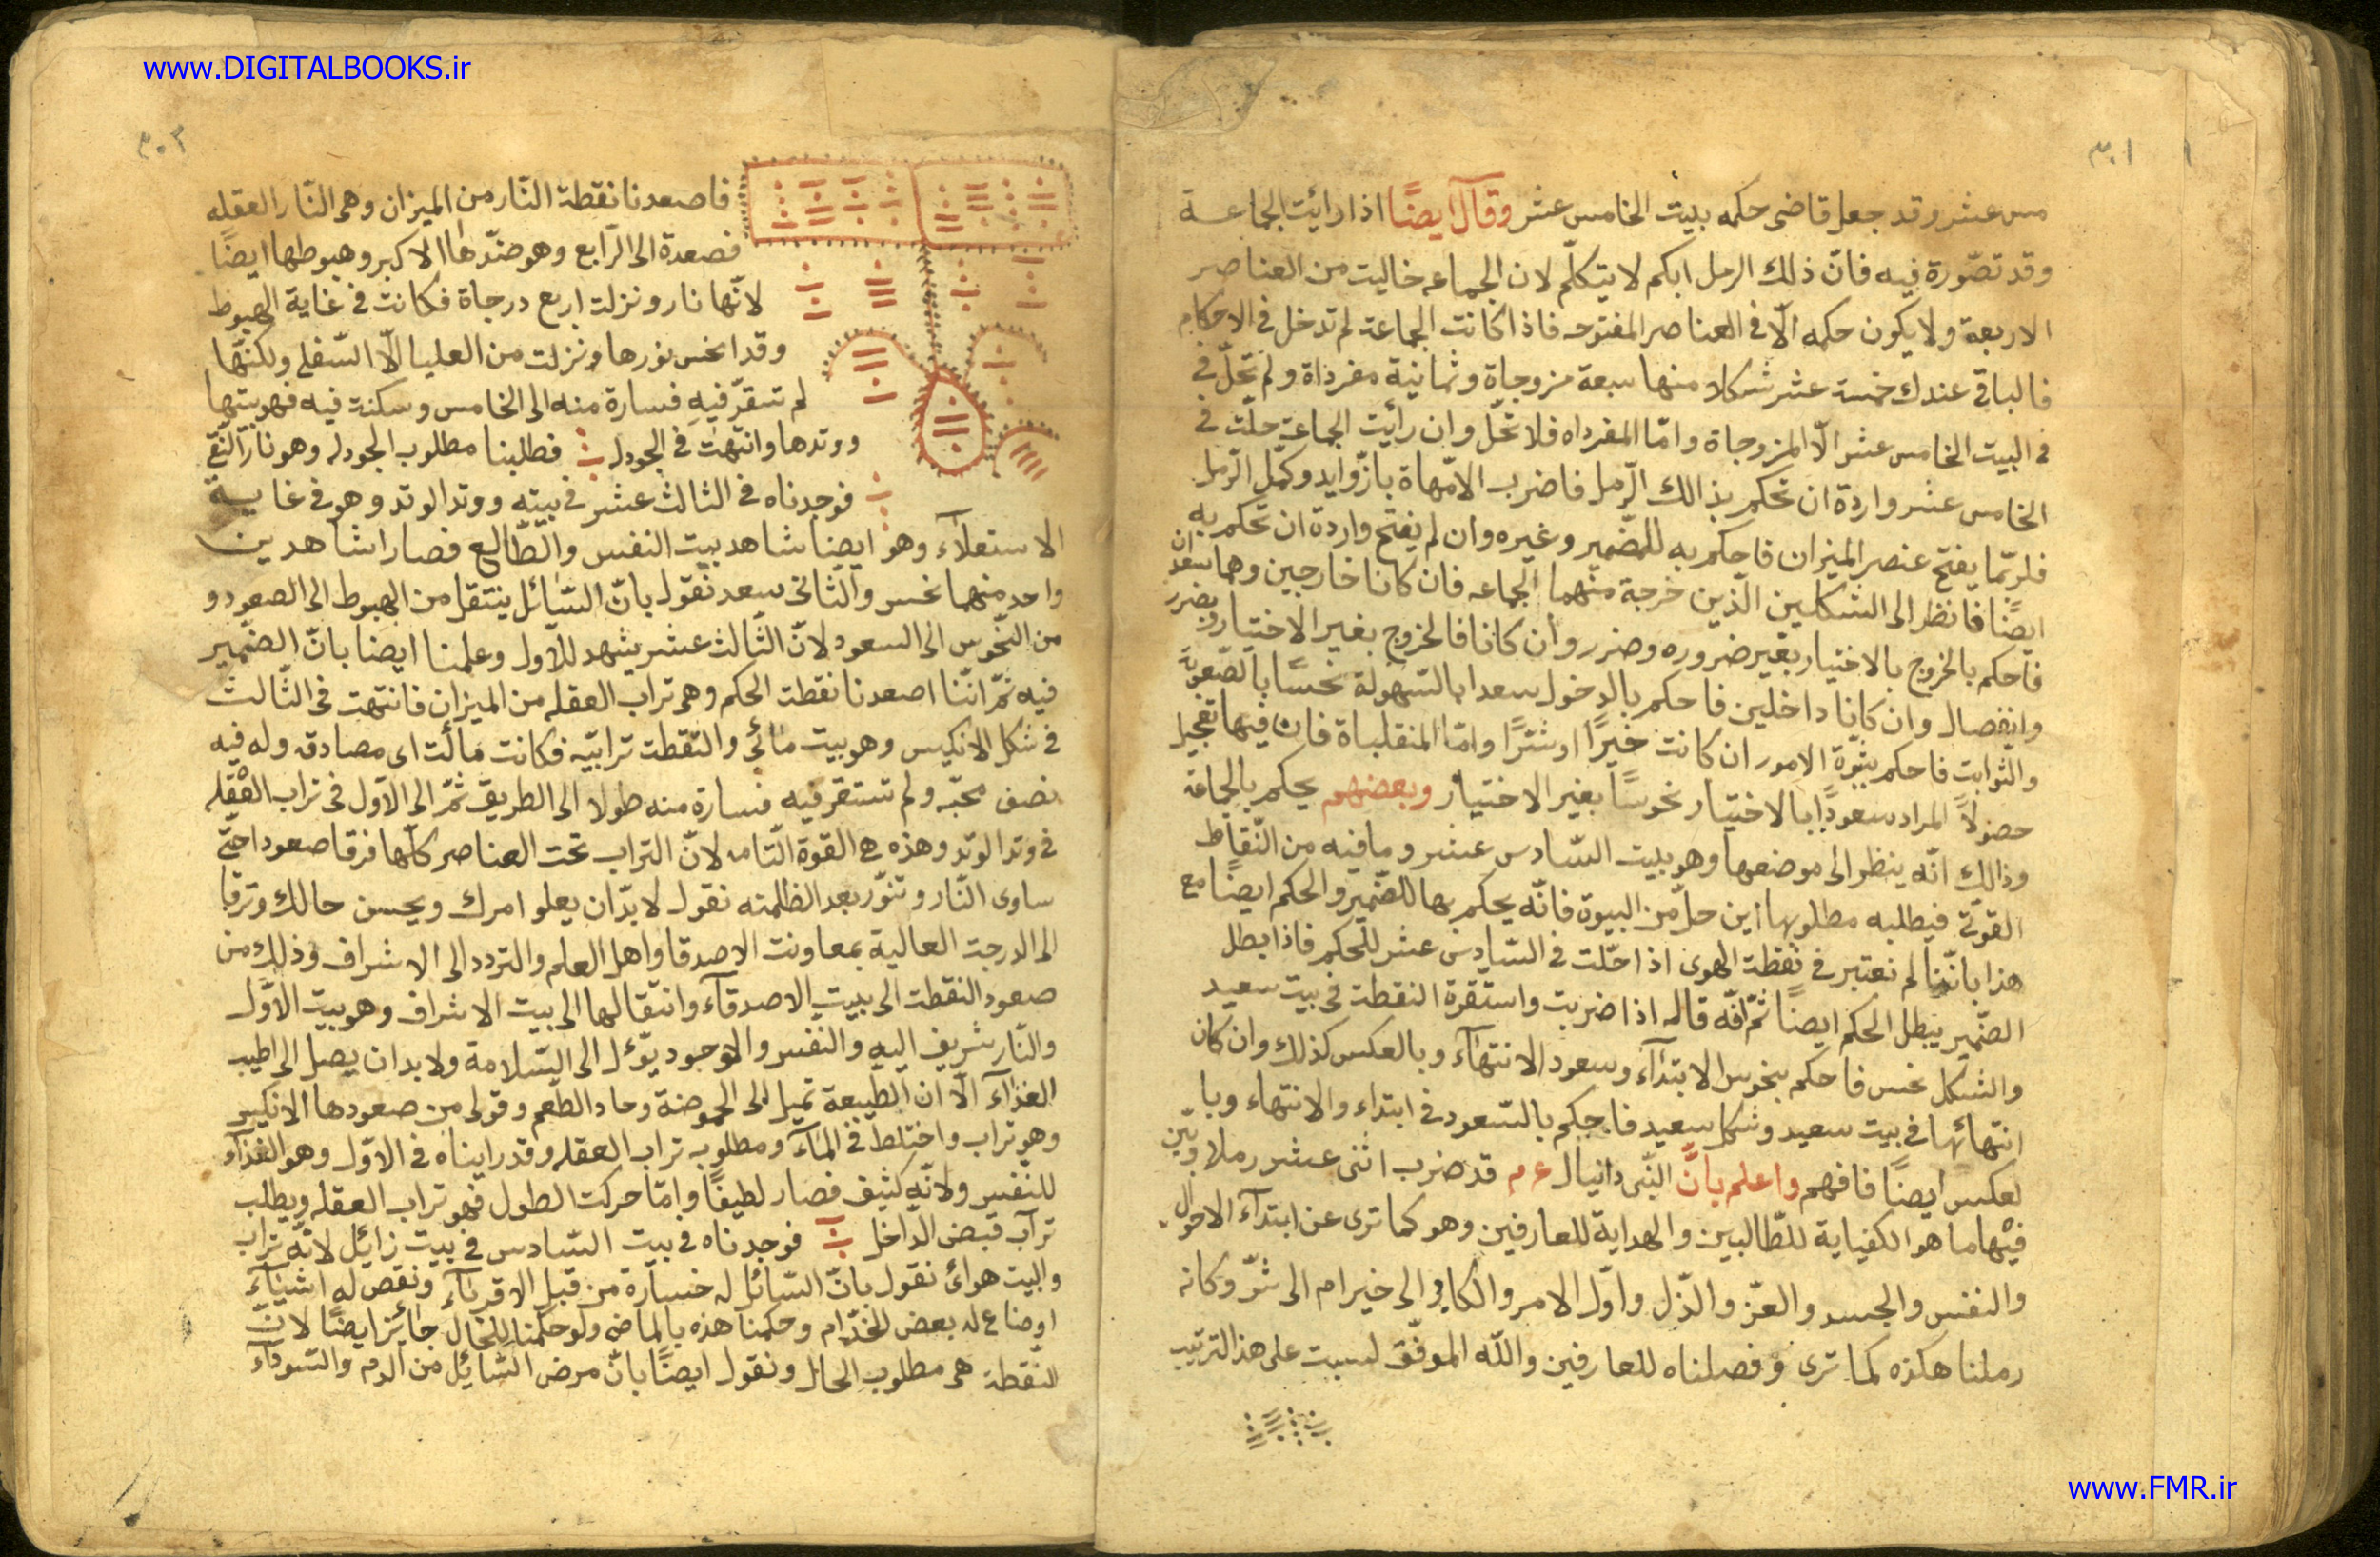 www.DIGITALBOOKS.ir
٣٠١
مس عشر وقد جعل قاضى حكمه بليت الخامس عشر وقال ايضًا اذا رائيت الجماعة
وقد تصّورة فيه فانّ ذلك الرمل ابكم لا يتكلّم لان الجماعه خاليت من العناصر
الاربعة ولا يكون حكمه الّا فى العناصر المفتوحه فاذا كانت الجماعة لم تدخل فى الاحكام
فالباقى عندك خمسة عشر شكلا منها سبعة مزوجاة وثمانية مفرداة ولم تحلّ فى
فى البيت الخامس عشر الّا المزوجاة وامّا المفرداه فلا تحّل وان رأيت الجماعة حلّت فى
الخامس عشر واردة ان تحكم بذالك الرّمل فاضرب الامّهاة بازّوايد وكمّل الرّمل
فلربّما يفتح عنصر الميزان فاحكم به للضّمير وغيره وان لم يفتح واردة ان تحكم به
ايضًا فانظر الى الشكلين الّذين خرجة منهما الجماعه فان كانا خارجين وهما سعدان
فاحكم بالخروج بالاختيار بغير ضروره وضرر وان كانا فالخروج بغير الاختيار وبضرر
وانفصال وان كانا داخلين فاحكم بالدخول سعدا بالسّهولة نحسًا بالصّعوبة
والثّوابت فاحكم بثبوة الامور ان كانت خيرًا او شرًّا وامّا المنقلباة فان فيها تعجيل
حصولاً المراد سعودًا بالاختيار نحوسًا بغير الاختيار وبعضهم يحكم بالجماعة
وذالك انّه ينظر الى موضعها وهو بليت السّادس عشر وما فيه من النّقاط
القوّة فيطلبه مطلوبها اين حلّ من البيوة فانّه يحكم بها للضّمير والحكم ايضًا مع
هذا باننّا لم نعتبر فى نقطة الهوى اذا حّلت فى السّادس عشر للحكم فاذا بطل
الضّمير يبطل الحكم ايضًا ثمّ انّه قال اذا ضربت واستقرة النقطة فى بيت سعيد
والشكل نحس فاحكم بنحوس الابتدآء وسعود الانتهآء وبالعكس كذلك وان كان
انتهائها فى بيت سعيد وشكل سعيد فاحكم بالسّعود فى ابتداء والانتهاء وبا
لعكس ايضًا فافهم واعلم بانّ النّبى دانيال ع م قد ضرب اثنى عشر رملا وبيّن
فيها ما هو الكفياية للطّالبين والهداية للعارفين وهو كما ترى عن ابتدآء الاحوال
والنفس والجسد والعزّ والذّل واوّل الامر والكافى الى خير ام الى شرّ وكانه
رملنا هكذه كما ترى وفصلناه للعارفين واللّه الموفّق لسبت على هذ الترتيب
٣٠٢
فاصعدنا نقطة النّار من الميزان وهى النّار العقله
فصعدة الى الرّابع وهو ضدّها الاكبر وهبوطها ايضًا
لانّها نار ونزلت اربع درجاة فكانت فى غاية الهبوط
وقد انحس نورها ونزلت من العليا الّا السّفلى ولكنّها
لم تسقرّ فيه فسارة منه الى الخامس وسكنة فيه فهو بيتها
ووتدها وانتهت فى الجودله فطلبنا مطلوب الجودله وهو نار النّقى
فوجدناه فى الثالث عشر فى بيته ووتد الوتد وهو فى غاية
الاستعلآء وهو ايضا شاهد بيت النفس والطّالع فصارا شاهدين
واحد منهما نحس والثّانى سعد نقول بانّ السّائل ينتقل من الهبوط الى الصعود و
من النّحوس الى السعود لانّ الثّالث عشر يشهد للاوّل وعلمنا ايضا بانّ الضّمير
فيه ثمّ انّنا اصعدنا نقطة الحكم وهى تراب العقله من الميزان فانتهت فى الثّالث
فى شكل الانكيس وهو بيت مائى والنّقطة ترابيّه فكانت مالت اى مصادقه وله فيه
نصف محبّه ولم تستقر فيه فسارة منه طولا الى الطريق ثمّ الى الاوّل فى تراب العقله
فى وتد الوتد وهذه هى القوة التّامه لانّ التراب تحت العناصر كلّها فرقا صعودا حتّى
ساوى النّار وتنوّر بعد الظلمته نقول لا بدّ ان يعلو امرك ويحسن حالك وترقا
الى الدرجة العالية بمعاونت الاصدقا واهل العلم والتردد الى الاشراف وذلك من
صعود النقطة الى بليت الاصدقآء وانتقالها الى بيت الاشراف وهو بيت الاوّل
والنّار شريف اليه والنّفس والموجود يؤل الى السّلامة ولا بد ان يصل الى اطيب
الغذآء الّا ان الطّبيعة تميل الى الحموضة وحاد الطّعم وقولى من صعودها الانكيس
وهو تراب واختلط فى المآء ومطلوب تراب العقله وقد رايناه فى الاوّل وهو الغذآء
للنّفس ولانّه كثيف فصار لطيفًا وامّا حركت الطول فهو تراب العقله ويطلب
تراب قبض الدّاخل فوجدناه فى بيت السّادس فى بيت زائل لانّه تراب
والبيت هوائى نقول بانّ السّائل له خسارة من قبل الاقربآء ونقص له اشيآء
اوضاع له بعض الخدّام وحكمنا هذه بالماضى ولو حكمنا للحال جائز ايضًا لانّ
النّقطة هى مطلوب الحال ونقول ايضًا بانّ مرض السّائل من الدم والسّودآء
www.FMR.ir